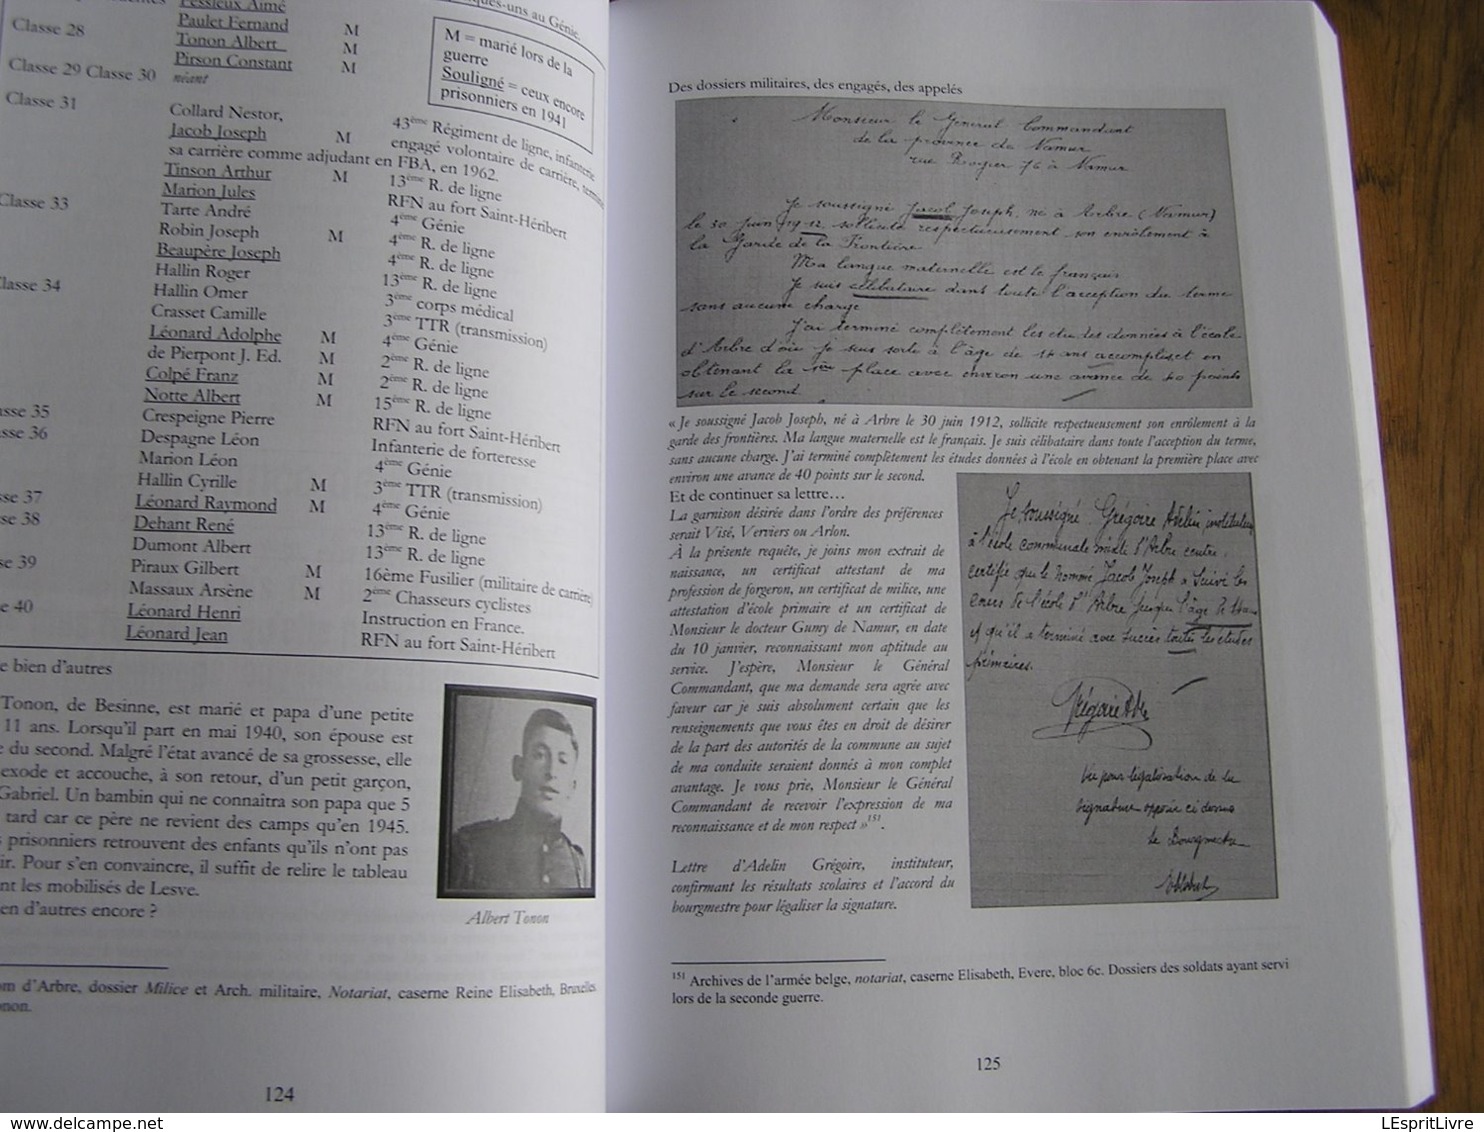 Pessieux Aimé
Classe 28
Paulet Fernand M
Tonon Albert M
Pirson Constant M
Classe 29 Classe 30 néant
Classe 31
Collard Nestor,
Jacob Joseph M 43ème Régiment de ligne, infanterie
engagé volontaire de carrière,
sa carrière comme adjudant en FBA, en 1962.
Tinson Arthur M 13ème R. de ligne
Marion Jules RFN au fort Saint-Héribert
Classe 33
Tarte André 4ème Génie
Robin Joseph M 4ème R. de ligne
Beaupère Joseph 4ème R. de ligne
Hallin Roger 13ème R. de ligne
Classe 34
Hallin Omer 3ème corps médical
Crasset Camille 3ème TTR (transmission)
Léonard Adolphe M 4ème Génie
de Pierpont J. Ed. M 2ème R. de ligne
Colpé Franz M 2ème R. de ligne
Notte Albert M 15ème R. de ligne
asse 35 Crespeigne Pierre RFN au fort Saint-Héribert
sse 36 Despagne Léon Infanterie de forteresse
Marion Léon 4ème Génie
Hallin Cyrille M 3ème TTR (transmission)
sse 37 Léonard Raymond M 4ème Génie
sse 38 Dehant René 13ème R. de ligne
Dumont Albert 13ème R. de ligne
se 39 Piraux Gilbert M 16ème Fusilier (militaire de carrière)
Massaux Arsène M 2ème Chasseurs cyclistes
e 40 Léonard Henri Instruction en France.
Léonard Jean RFN au fort Saint-Héribert
ques-uns au Génie.
M = marié lors de la
guerre
Souligné = ceux encore
prisonniers en 1941
e bien d'autres
Tonon, de Besinne, est marié et papa d'une petite
11 ans. Lorsqu'il part en mai 1940, son épouse est
e du second. Malgré l'état avancé de sa grossesse, elle
exode et accouche, à son retour, d'un petit garçon,
Gabriel. Un bambin qui ne connaitra son papa que 5
tard car ce père ne revient des camps qu'en 1945.
s prisonniers retrouvent des enfants qu'ils n'ont pas
ir. Pour s'en convaincre, il suffit de relire le tableau
nt les mobilisés de Lesve.
en d'autres encore ?
Albert Tonon
om d'Arbre, dossier Milice et Arch. militaire, Notariat, caserne Reine Elisabeth, Bruxelles.
onon.
124
Des dossiers militaires, des engagés, des appelés
Monsieur le Général Commandant
de la province de Namur
rue Rogier 76 à Namur
Je soussigné Jacob Joseph, né à Arbre (Namur)
le 30 juin 1912, sollicite respectueusement son enrôlement à
la Garde de la Frontière
Ma langue maternelle est le français
Je suis célibataire dans toute l'acception du terme
sans aucune charge
J'ai terminé complètement les études données à l'école
d'Arbre d'où je suis sorti à l'âge de 14 ans accomplis, et en
obtenant la 1ère place avec environ une avance de 40 points
sur le second.
« Je soussigné Jacob Joseph, né à Arbre le 30 juin 1912, sollicite respectueusement son enrôlement à la
garde des frontières. Ma langue maternelle est le français. Je suis célibataire dans toute l'acception du terme,
sans aucune charge. J'ai terminé complètement les études données à l'école en obtenant la première place avec
environ une avance de 40 points sur le second.
Et de continuer sa lettre…
La garnison désirée dans l'ordre des préférences
serait Visé, Verviers ou Arlon.
À la présente requête, je joins mon extrait de
naissance, un certificat attestant de ma
profession de forgeron, un certificat de milice, une
attestation d'école primaire et un certificat de
Monsieur le docteur Gumy de Namur, en date
du 10 janvier, reconnaissant mon aptitude au
service. J'espère, Monsieur le Général
Commandant, que ma demande sera agrée avec
faveur car je suis absolument certain que les
renseignements que vous êtes en droit de désirer
de la part des autorités de la commune au sujet
de ma conduite seraient donnés à mon complet
avantage. Je vous prie, Monsieur le Général
Commandant de recevoir l'expression de ma
reconnaissance et de mon respect »151.
Lettre d'Adelin Grégoire, instituteur,
confirmant les résultats scolaires et l'accord du
bourgmestre pour légaliser la signature.
Je soussigné Grégoire Adelin, instituteur
à l'école communale mixte d'Arbre centre,
certifie que le nommé Jacob Joseph a suivi les
cours de l'école d'Arbre jusqu'à l'âge de 14 ans
et qu'il a terminé avec succès toutes les études
primaires.
Grégoire Ad.
Vu pour légalisation de la
signature apposée ci-dessus
Le Bourgmestre
151 Archives de l'armée belge, notariat, caserne Elisabeth, Evere, bloc 6c. Dossiers des soldats ayant servi
lors de la seconde guerre.
125
LEspritLivre